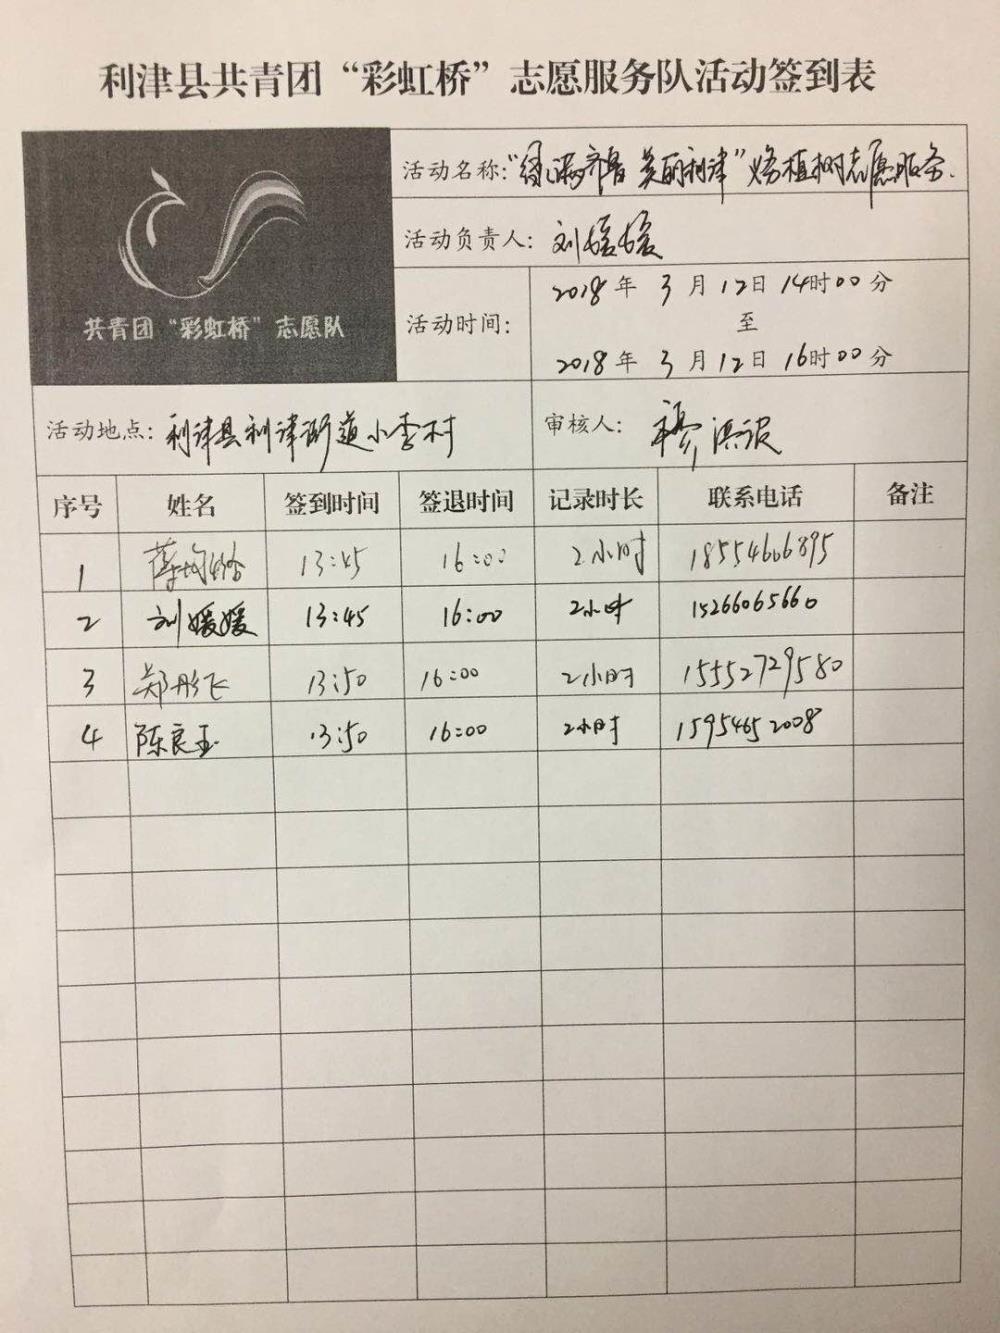 利津县共青团“彩虹桥”志愿服务队活动签到表
共青团“彩虹桥”志愿队
活动名称:“绿满齐鲁 美丽利津”义务植树志愿服务.
活动负责人: 刘媛媛
活动时间:
2018年 3月12日 14时00分
至
2018年 3月12日 16时00分
活动地点: 利津县利津街道小李村
审核人:
序号 姓名 签到时间 签退时间 记录时长 联系电话 备注
1 13:45 16:00 2小时 18554606895
2 刘媛媛 13:45 16:00 2小时 15266065660
3 郑彤飞 13:50 16:00 2小时 15552729580
4 陈良玉 13:50 16:00 2小时 15954652008